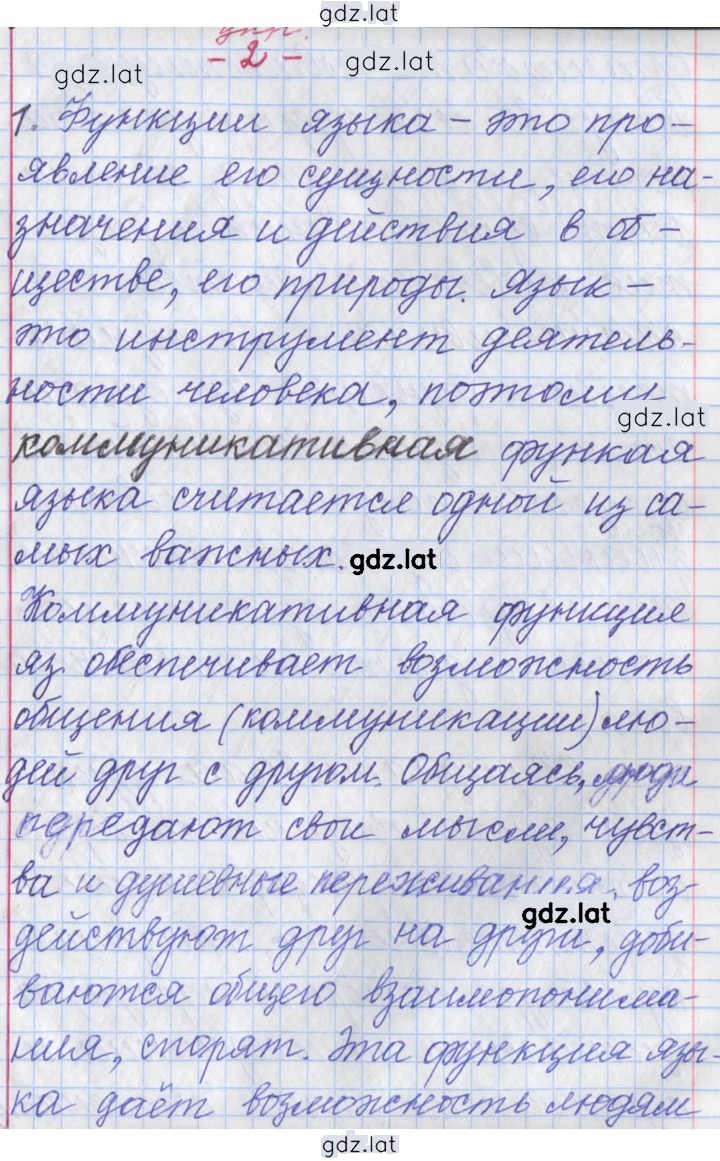 gdz.lat
упр.
- 2 -
gdz.lat
gdz.lat
1. Функции языка – это про-
явление его сущности, его на-
значения и действия в об-
ществе, его природы. Язык –
это инструмент деятель-
ности человека, поэтому
gdz.lat
коммуникативная функая
языка считается одной из са-
мых важных.
gdz.lat
Коммуникативная функция
яз. обеспечивает возможность
общения (коммуникации) лю-
дей друг с другом. Общаясь, люди
передают свои мысли, чувст-
ва и душевные переживания, воз-
gdz.lat
действуют друг на друга, доби-
ваются общего взаимопонима-
ния, спорят. Эта функция язы-
ка даёт возможность людям
gdz.lat